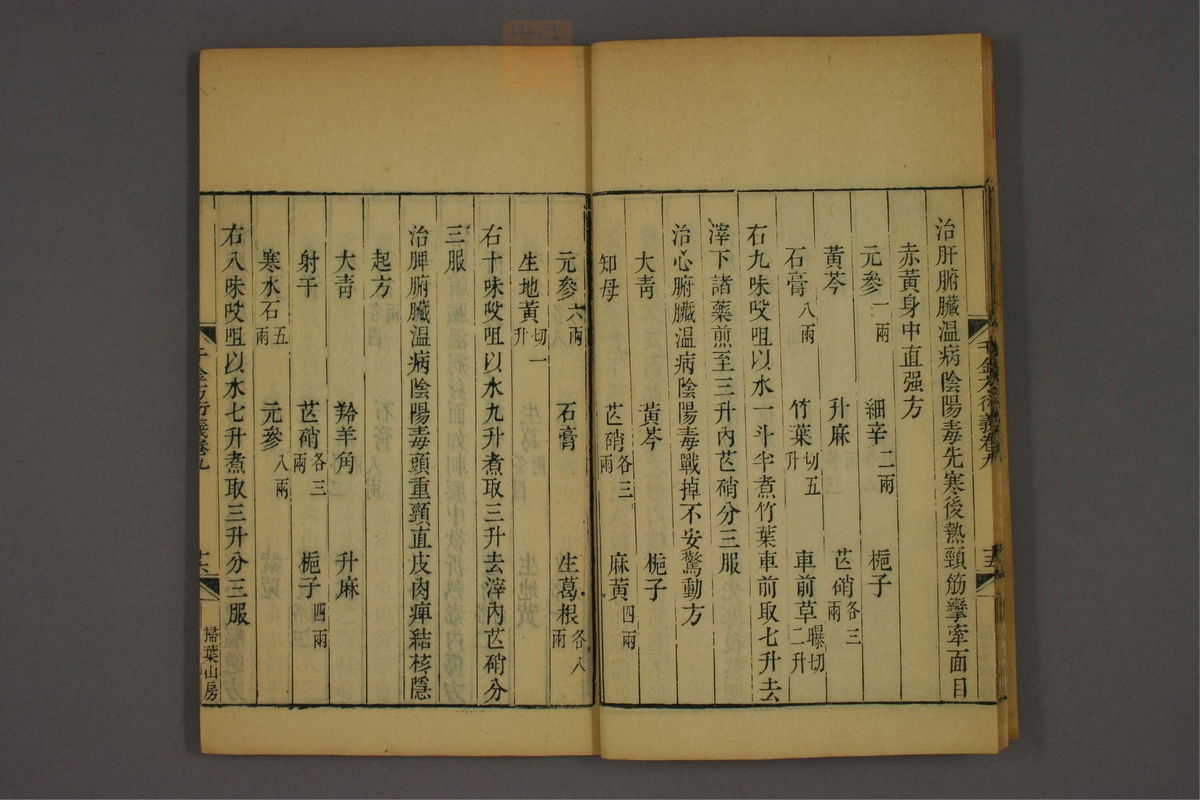 治肝腑臟温病陰陽毒先寒後熱頸筋攣牽面目
赤黄身中直强方
元參一兩 細辛二兩 梔子
黄芩 升麻 芒硝各三兩
石膏八兩 竹葉切五升 車前草曝切二升
右九味㕮咀以水一斗半煮竹葉車前取七升去
滓下諸藥煎至三升内芒硝分三服
治心腑臟温病陰陽毒戰掉不安驚動方
大靑 黄芩 梔子
知母 芒硝各三兩 麻黄四兩
元參六兩 石膏 生葛根各八兩
生地黄切一升
右十味㕮咀以水九升煮取三升去滓内芒硝分
三服
治脾腑臟温病陰陽毒頭重頸直皮肉痺結核隱
起方
大靑 羚羊角 升麻
射干 芒硝各三兩 梔子四兩
寒水石五兩 元參八兩
右八味㕮咀以水七升煮取三升分三服
千金方衍義卷九
掃葉山房